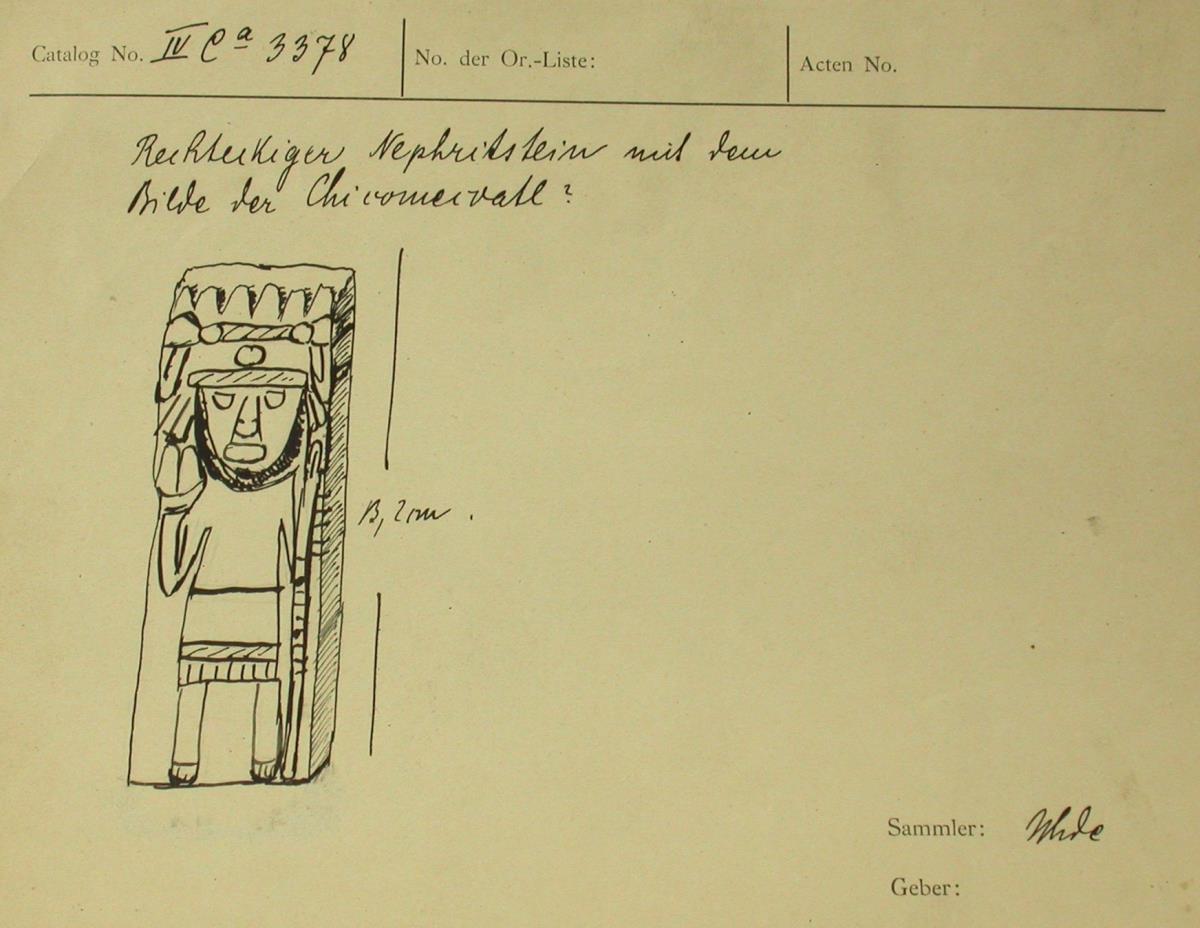 Catalog No. IV Cª 3378
No. der Or.-Liste:
Acten No.
Rechteckiger Nephritstein mit dem
Bilde der Chicomecoatl?
13,2 cm.
Sammler: Uhde
Geber: